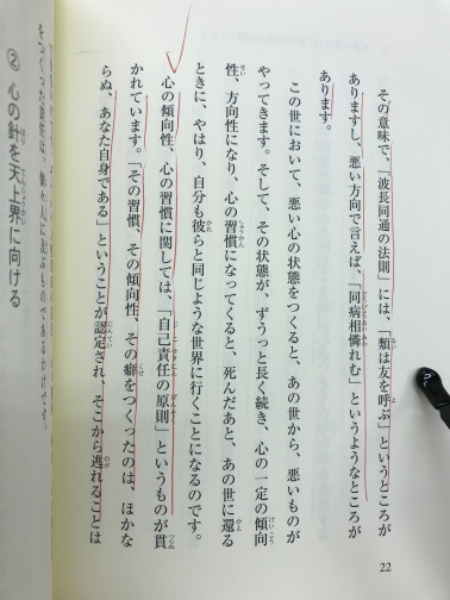 その意味で、「波長同通の法則」には、「類は友を呼ぶ」というところが
ありますし、悪い方向で言えば、「同病相憐れむ」というようなところが
あります。
この世において、悪い心の状態をつくると、あの世から、悪いものが
やってきます。そして、その状態が、ずうっと長く続き、心の一定の傾向
性、方向性になり、心の習慣になってくると、死んだあと、あの世に還る
ときに、やはり、自分も彼らと同じような世界に行くことになるのです。
心の傾向性、心の習慣に関しては、「自己責任の原則」というものが貫
かれています。「その習慣、その傾向性、その癖をつくったのは、ほかな
らぬ、あなた自身である」ということが認定され、そこから逃れることは
22
② 心の針を天上界に向ける